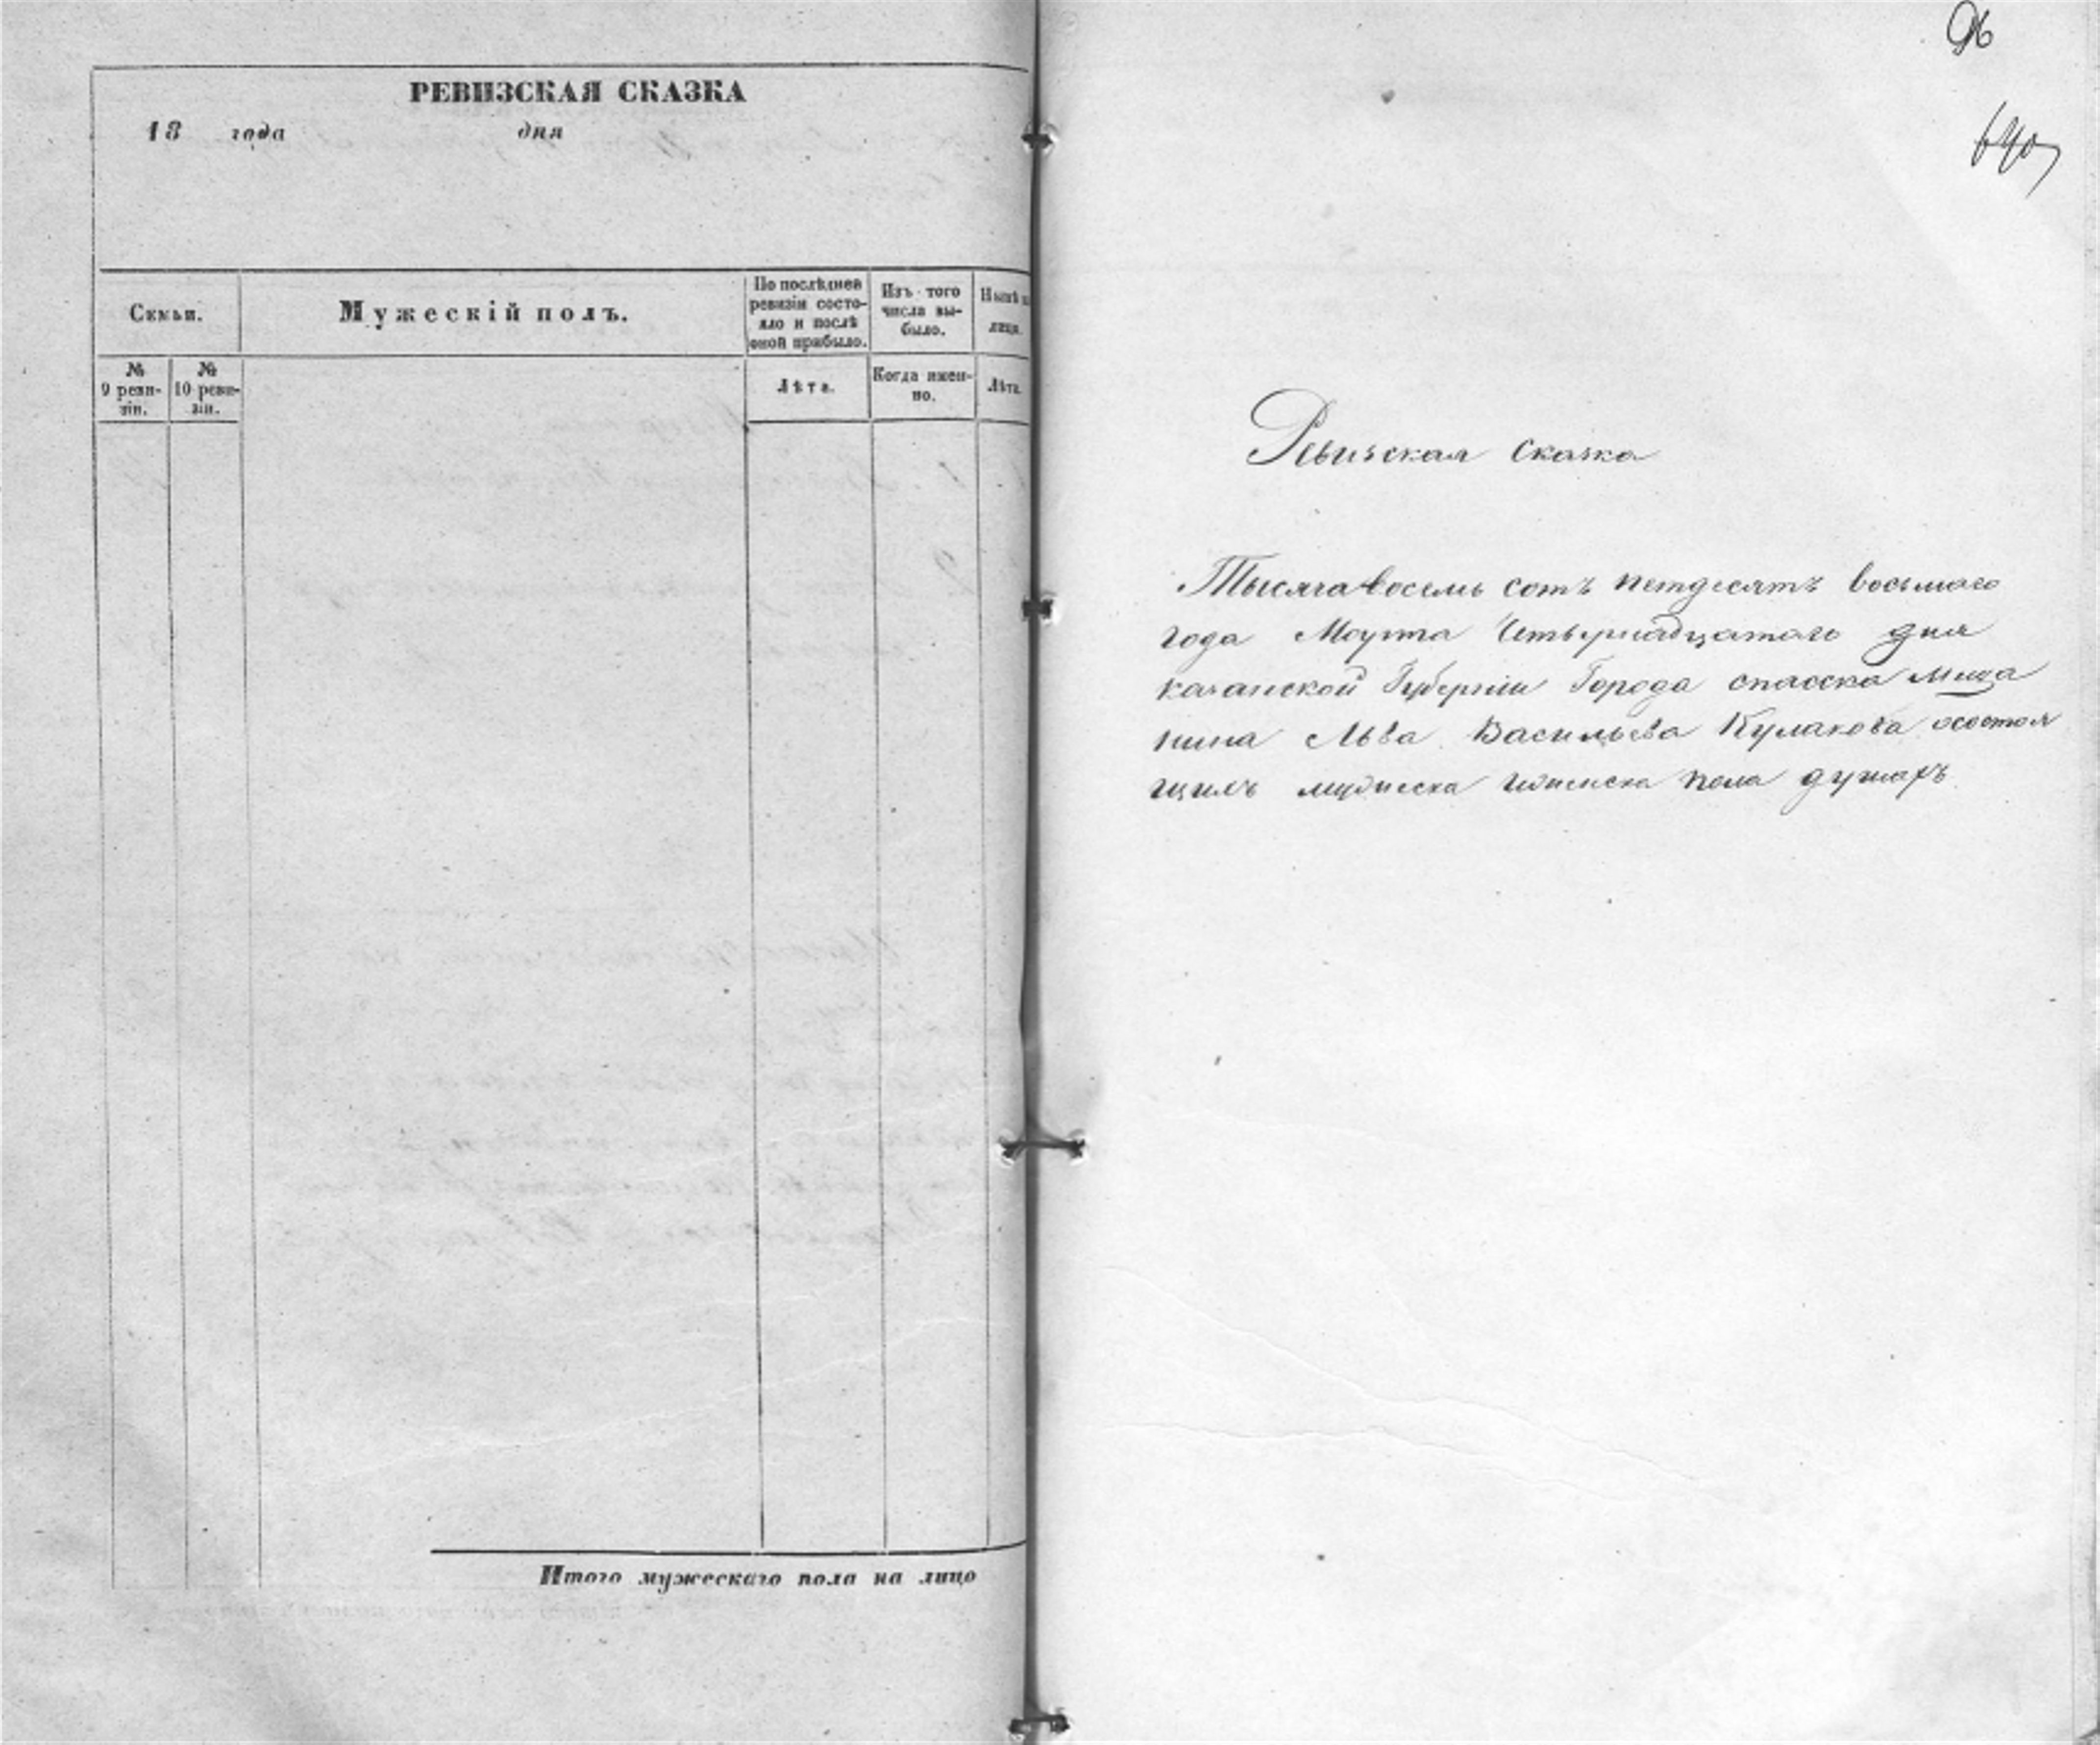 РЕВИЗСКАЯ СКАЗКА
18 года дня
Семьи.
Мужескій полъ.
По послѣдней
ревизіи состо-
яло и послѣ
оной прибыло.
Изъ того
числа вы-
было.
Нынѣ на
лицо.
№
9 реви-
зіи.
№
10 реви-
зіи.
Лѣта.
Когда имен-
но.
Лѣта.
Итого мужескаго пола на лицо
640
Ревизская сказка
Тысяча восемь сотъ петдесятъ восьмаго
года Марта Четвернадцатаго дня
казанской Губерніи Города спасска мища
нина Льва Васильева Кулакова осостоя
щихъ мужеска женска пола душахъ